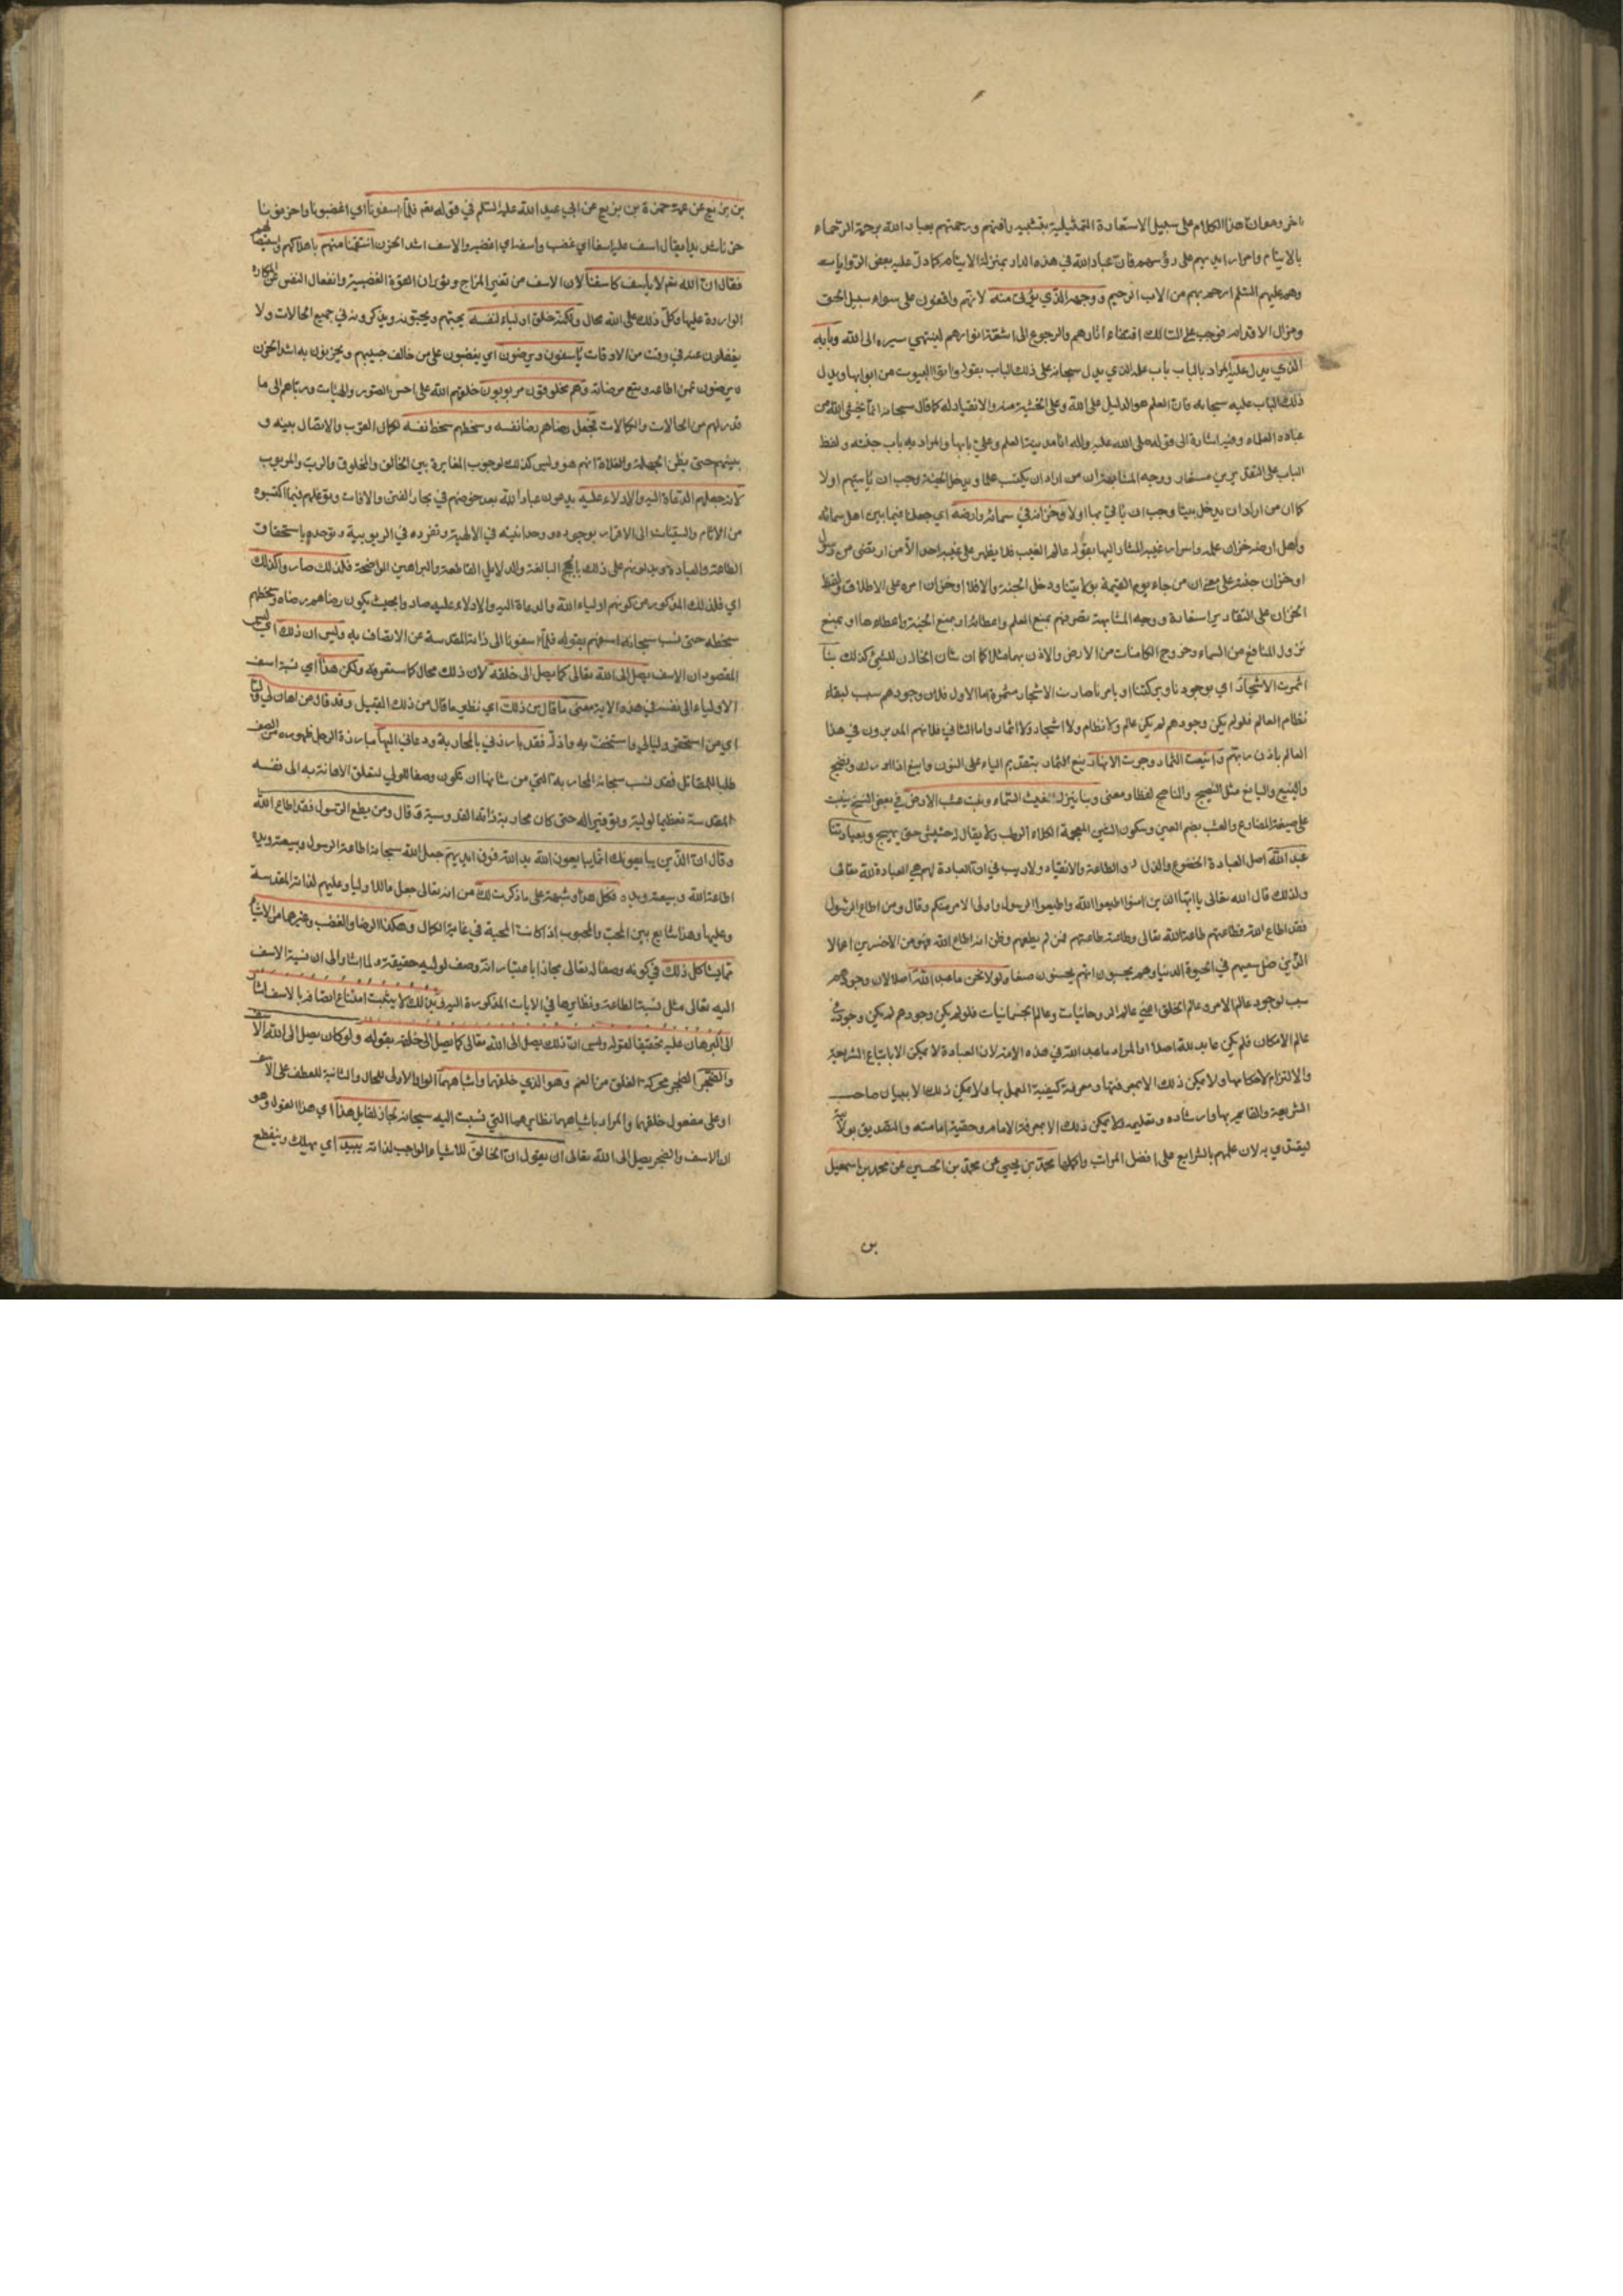 باخر ومعان هذا الكلام على سبيل الاستعارة التمثيلية بتشبيه رافتهم ورحمتهم بعباد الله برحمة الرحماء
بالايتام وامرار ايديهم على رؤسهم فان عباد الله في هذه الدار بمنزلة الايتام كما دل عليه بعض الروايات
وهم عليهم السلم ارحم بهم من الاب الرحيم ووجهه الذي يؤتى منه لانهم واقفون على سواء سبيل الحق
ومزال الاقدام فوجب على السالك اقتفاء اثارهم والرجوع الى اشعة انوارهم لينتهي سيره الى الله وبابه
الذي يدل عليه المراد بالباب باب علمه الذي يدل سبحانه على ذلك الباب بقوله واتوا البيوت من ابوابها ويدل
ذلك الباب عليه سبحانه فان العلم هو الدليل على الله وعلى الخشية منه والانقياد له كما قال سبحانه انما يخشى الله من
عباده العلماء وفيه اشارة الى قوله صلى الله عليه واله انا مدينة العلم وعلي بابها والمراد به باب جنته ولفظ
الباب على التقديرين مستعار ووجه المشابهة ان من اراد ان يكتسب علما ويدخل الجنة وجب ان ياتيهم اولا
كما ان من اراد ان يدخل بيتا وجب ان ياتي بابها اولا وخزانه في سمائه وارضه اي جعلنا فيما بين اهل سمائه
واهل ارضه خزان علمه واسرار غيبه المشار اليها بقوله عالم الغيب فلا يظهر على غيبه احدا الا من ارتضى من رسول
او خزان جنته على معنى ان من جاء يوم القيمة بولايتنا دخل الجنة والا فلا او خزان امره على الاطلاق ولفظ
الخزان على التقادير استعارة ووجه المشابهة تصرفهم بمنع العلم واعطائه او بمنع الجنة واعطاءها او بمنع
نزول المنافع من السماء وخروج الكائنات من الارض والاذن بهما مثلا كما ان شان الخازن للشيء كذلك بنا
اثمرت الاشجار اي بوجودنا وبركتنا او بامرنا صارت الاشجار مثمرة اما الاول فلان وجودهم سبب لبقاء
نظام العالم فلو لم يكن وجودهم لم يكن عالم ولا نظام ولا اشجار ولا اثمار واما الثاني فلانهم المدبرون في هذا
العالم باذن ربهم واينعت الثمار وجرت الانهار ينع الثمار بتقديم الياء على النون واينع اذا ادرك ونضج
والينيع واليانع مثل النضيج والناضج لفظا ومعنى وبنا ينزل الغيث السماء ونبت عشب الارض في بعض النسخ ينبت
على صيغة المضارع والعشب بضم العين وسكون الشين المعجمة الكلاء الرطب ولا يقال له حشيش حتى يهيج وبعبادتنا
عبد الله اصل العبادة الخضوع والذل والطاعة والانقياد ولا ريب في ان العبادة لهم هي العبادة لله تعالى
ولذلك قال الله تعالى يا ايها الذين امنوا اطيعوا الله واطيعوا الرسول واولى الامر منكم وقال ومن اطاع الرسول
فقد اطاع الله فطاعتهم طاعة الله تعالى وطاعته طاعتهم فمن لم يطعهم وظن انه اطاع الله فهو من الاخسرين اعمالا
الذين ضل سعيهم في الحيوة الدنيا وهم يحسبون انهم يحسنون صنعا ولولا نحن ما عبد الله اصلا لان وجودهم
سبب لوجود عالم الامر وعالم الخلق اعني عالم الروحانيات وعالم الجسمانيات فلو لم يكن وجودهم لم يكن وجود في
عالم الامكان فلم يكن عابد لله اصلا او المراد ما عبد الله في هذه الامة لان العبادة لا يمكن الا باتباع الشريعة
والالتزام لاحكامها ولا يمكن ذلك الا بمعرفتها ومعرفة كيفية العمل بها ولا يمكن ذلك الا ببيان صاحب
الشريعة والقايم بها وارشاده وتعليمه ولا يمكن ذلك الا بمعرفة الامام وحقية امامته والتصديق بولايته
ليقتدي به لان علمهم بالشرايع على افضل المراتب واكملها محمد بن يحيى عن محمد بن الحسين عن محمد بن اسمعيل
بن
بن بزيع عن عمه حمزة بن بزيع عن ابي عبد الله عليه السلم في قوله تعم فلما اسفونا اي اغضبونا واحزنونا
يقال اسف عليه اسفا اي غضب واسفه اي اغضبه والاسف اشد الحزن انتقمنا منهم باهلاكهم
فقال ان الله تعم لا ياسف كاسفنا لان الاسف من تغير المزاج وثوران القوة الغضبية وانفعال النفس عن المكاره
الواردة عليها وكل ذلك على الله محال ولكنه خلق اولياء لنفسه يحبهم ويحبونه ويذكرونه في جميع الحالات ولا
يغفلون عنه في وقت من الاوقات ياسفون ويرضون اي يغضبون على من خالف حبيبهم ويحزنون به اشد الحزن
ويرضون عمن اطاعه وتبع مرضاته وهم مخلوقون مربوبون خلقهم الله على احسن الصور والهيئات ورباهم الى ما
قدر لهم من الحالات والكمالات فجعل رضاهم رضا نفسه وسخطهم سخط نفسه لكمال القرب والاتصال بينه و
بينهم حتى يظن الجهلة والغلاة انهم هو وليس كذلك لوجوب المغايرة بين الخالق والمخلوق والرب والمربوب
لانه جعلهم الدعاة اليه والادلاء عليه يدعون عباد الله بعد خوضهم في بحار الفتن والافات وتوغلهم فيما اكتسبوه
من الاثام والسيئات الى الاقرار بوجوده ووحدانيته في الالهية وتفرده في الربوبية وتوحده باستحقاق
الطاعة والعبادة ويدلونهم على ذلك بالحجج البالغة والدلايل القاطعة والبراهين الواضحة فلذلك صاروا كذلك
اي فلذلك المذكور من كونهم اولياء الله والدعاة اليه والادلاء عليه صاروا بحيث يكون رضاهم رضاه وسخطهم
سخطه حتى نسب سبحانه اسفهم بقوله فلما اسفونا الى ذاته المقدسة عن الاتصاف به وليس ان ذلك اي ليس
المقصود ان الاسف يصل الى الله تعالى كما يصل الى خلقه لان ذلك محال كما ستعرفه ولكن هذا اي نسبة اسف
الاولياء الى نفسه في هذه الاية معنى ما قال من ذلك اي نظير ما قال من ذلك القبيل وقد قال من اهان لي وليا
اي من استحقر وليا لي واستخف به واذله فقد بارزني بالمحاربة ودعاني اليها مبارزة الرجل ظهوره من الصف
طلبا للمقاتل فقد نسب سبحانه المحاربة التي من شانها ان يكون وصفا للولي لتعلق الاهانة به الى نفسه
المقدسة تعظيما لوليه وتوقيرا له حتى كان محاربة ذاته القدوسية وقال ومن يطع الرسول فقد اطاع الله
وقال ان الذين يبايعونك انما يبايعون الله يد الله فوق ايديهم جعل الله سبحانه اطاعة الرسول وبيعته ويده
اطاعة الله وبيعته ويده فكل هذا وشبهه على ما ذكرت لك من انه تعالى جعل ما للاولياء وعليهم لذاته المقدسة
وعليها وهذا شايع بين المحب والمحبوب اذا كانت المحبة في غاية الكمال وهكذا الرضا والغضب وغيرهما من الاشياء
مما يشاكل ذلك في كونه وصفا له تعالى مجازا باعتبار انه وصف لوليه حقيقة ولما اشار الى ان نسبة الاسف
اليه تعالى مثل نسبة الطاعة ونظايرها في الايات المذكورة اليه وبين ذلك لا يثبت امتناع اتصافه بالاسف اشار
الى البرهان عليه تحقيقا لقوله وليس ان ذلك يصل الى الله تعالى كما يصل الى خلقه بقوله ولو كان يصل الى الله الاسف
والضجر الضجر محركة القلق من الغم وهو الذي خلقهما وانشاهما الواو الاولى للحال والثانية للعطف على الاسف
او على مفعول خلقهما والمراد باشباههما نظايرهما التي نسبت اليه سبحانه لجاز لقايل هذا اي هذا القول وهو
ان الاسف والضجر يصل الى الله تعالى ان يقول ان الخالق للاشياء الواجب لذاته يبيد اي يهلك وينقطع